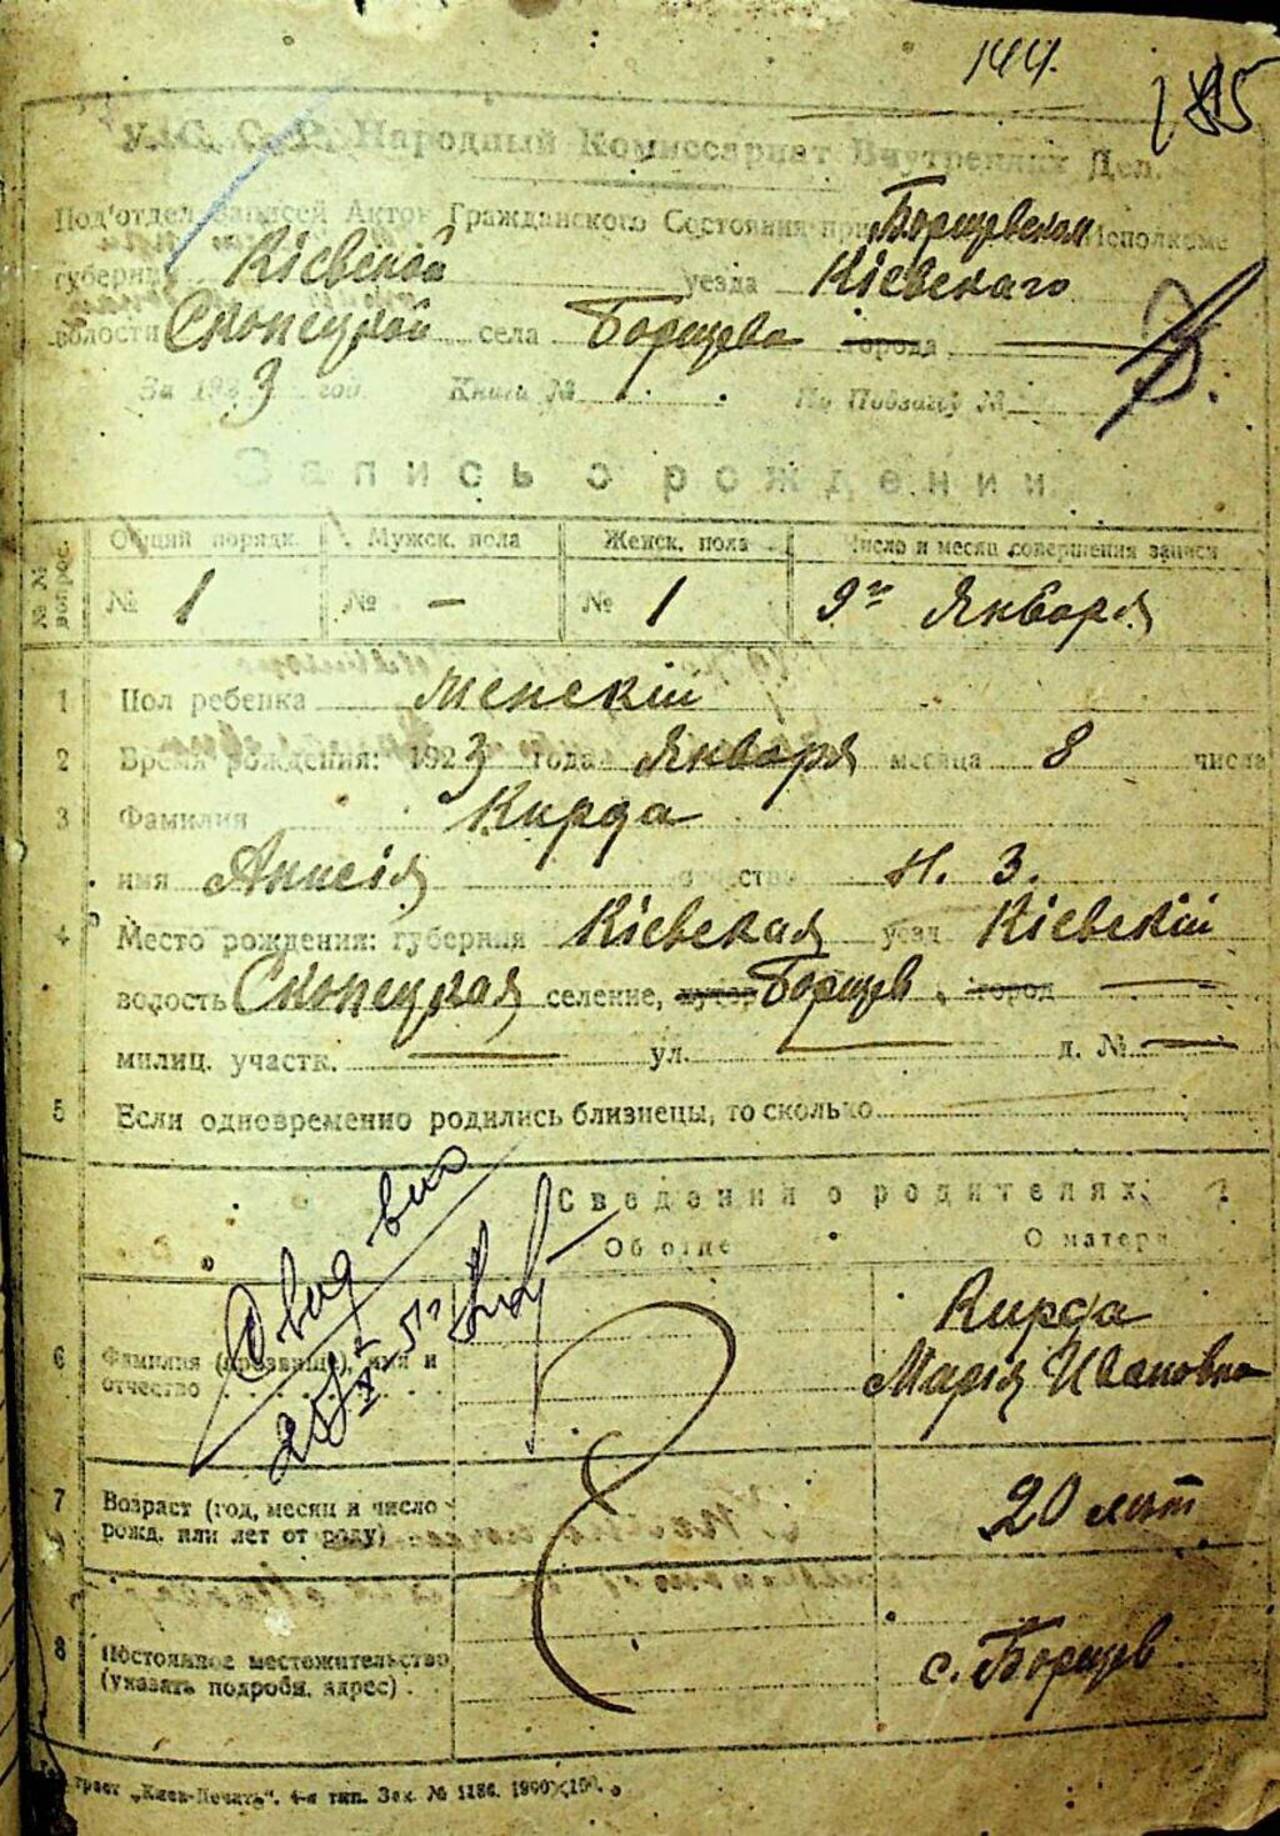 144.
185
У. С. С. Р. Народный Комиссариат Внутренних Дел.
Под'отдел Записей Актов Гражданского Состояния при Борщевском Исполкоме
губернии Кіевской уезда Кіевскаго
волости села Борщева города
За 1923 год. Книга № По Подзагу №
Запись о рождении
№№ вопрос. Общий порядк. Мужск. пола Женск. пола Число и месяц совершения записи
№ 1 № — № 1 9го Января
1 Пол ребенка Женскій
2 Время рождения: 1923 года Января месяца 8 числа
3 Фамилия Кирда
имя Анисія отчество Н. З.
4 Место рождения: губерния Кіевская уезд Кіевскій
волость селение, хутор Борщев, город —
милиц. участк. — ул. — д. № —
5 Если одновременно родились близнецы, то сколько
Сведения о родителях
Об отце О матери
6 Фамилия (прозвище), имя и отчество
Кирда
Марія Ивановна
7 Возраст (год, месяц и число рожд. или лет от роду)
20 лет
8 Постоянное местожительство (указать подробн. адрес)
с. Борщев
трест „Киев-Печать“. 4-я тип. Зак. № 1186.